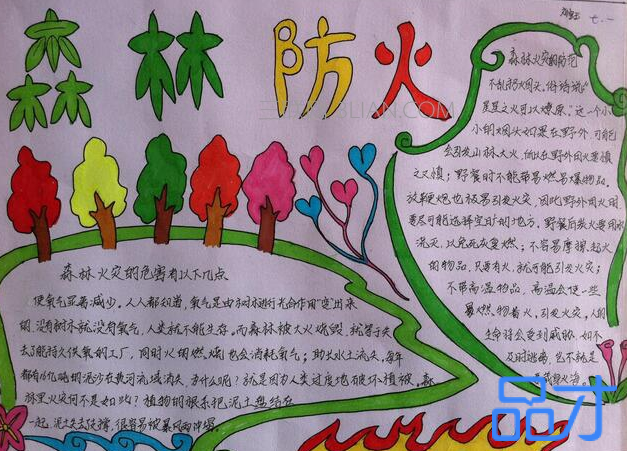 森林防火
七.一
森林火灾的防范
不乱扔烟头。俗话说"
星星之火可以燎原。"这一个小
小的烟头如果在野外,可能
会引发山林大火,所以在野外用火要慎
之又慎;野餐时不能带易燃易爆物品。
放鞭炮也极易引发火灾,因此野外用火时
要尽可能选择空旷的地方,野餐后装火要用水
浇灭,以免死灰复燃;不容易摩擦起火
的物品,只要有火,就可能引发火灾;
不带高温物品,高温会使一些
易燃物着火,引发火灾。人的
生命将会受到威胁,如不
及时逃离,也不就是
葬身火海。
森林火灾的危害有以下几点
使氧气显著减少。人人都知道,氧气是由树木进行光合作用"变"出来
的,没有树木就没有氧气,人类就不能生存。而森林被大火烧毁,就等于失
去了能持久供氧的工厂,同时火的燃烧也会消耗氧气;助长水土流失,每年
都有16亿吨的泥沙在黄河流域消失,为什么呢?就是因为人类过度地破坏植被。森
林里火灾何不是如此?植物的根系把泥土盘结在
一起,泥土失去支撑,很容易被暴风雨冲塌。
三联 3LIAN.COM
品才